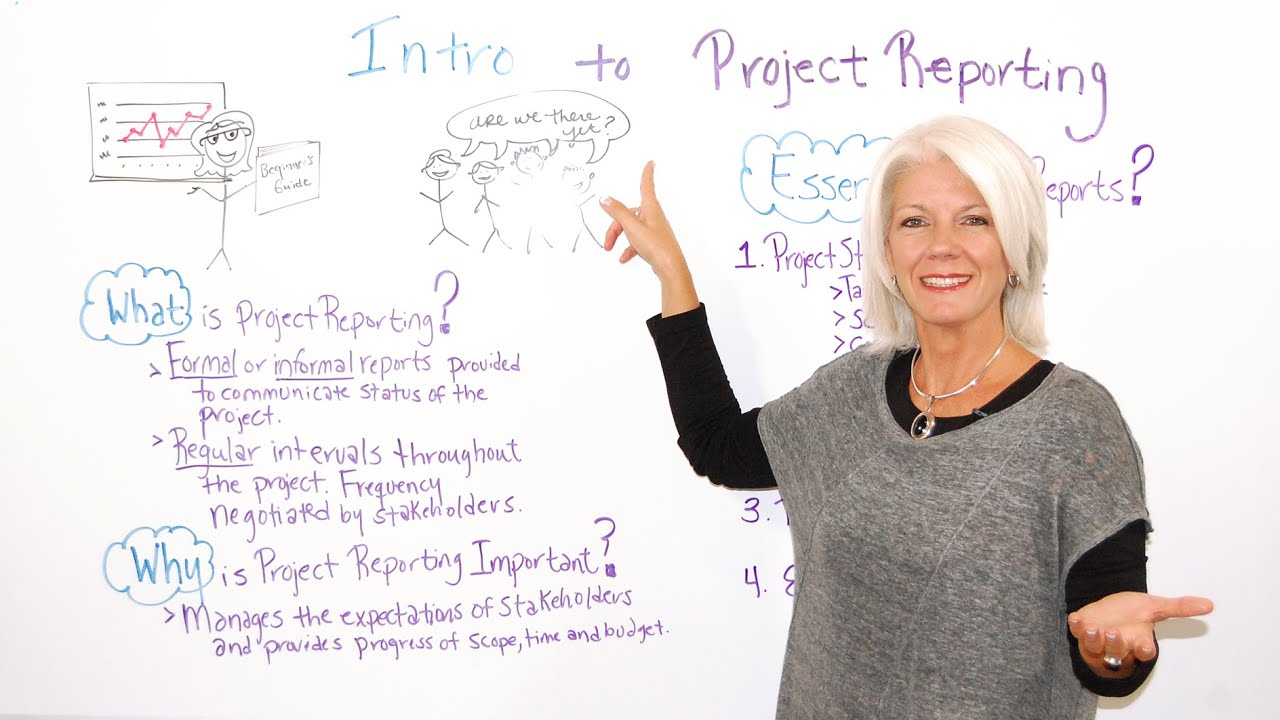 Intro to Project Reporting
Beginner's
Guide
are we there
yet?
What is Project Reporting?
> Formal or informal reports provided
to communicate status of the
project.
> Regular intervals throughout
the project. Frequency
negotiated by stakeholders.
Why is Project Reporting Important?
> Manages the expectations of Stakeholders
and provides progress of scope, time and budget.
Reports?
1. Project
3.
4.